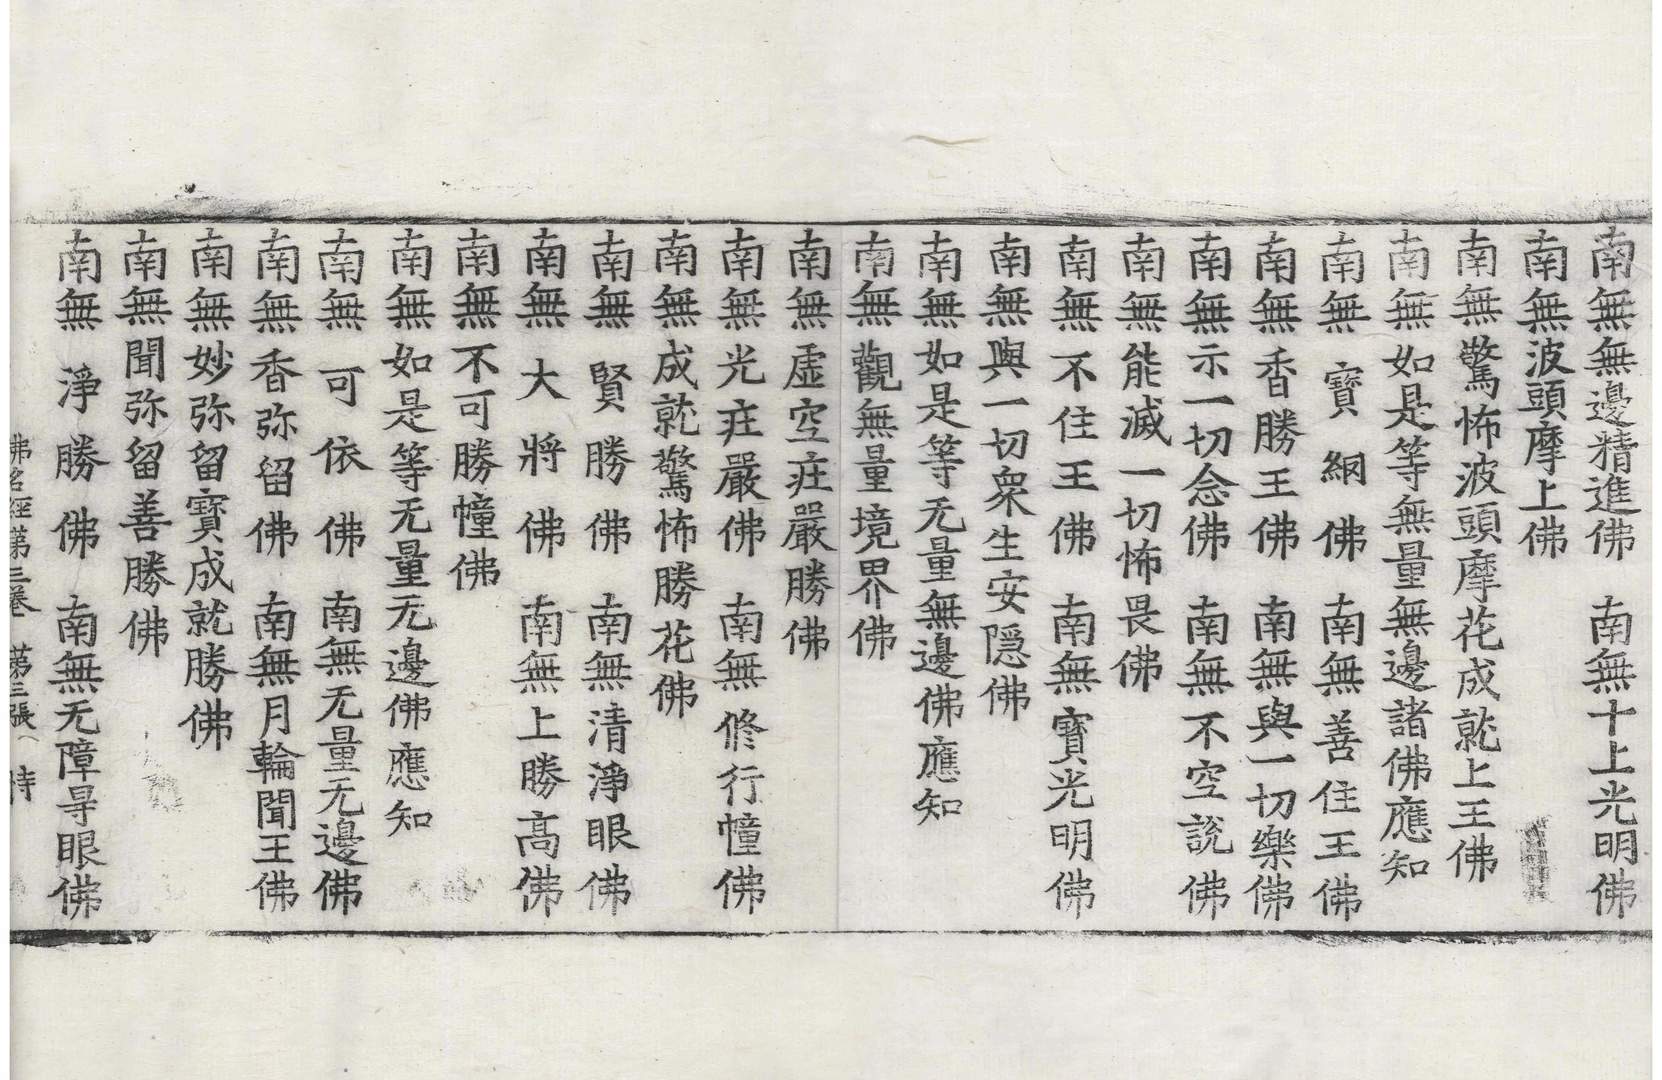 南無無邊精進佛　南無十上光明佛
南無波頭摩上佛
南無驚怖波頭摩花成就上王佛
南無如是等無量無邊諸佛應知
南無寶網佛　南無善住王佛
南無香勝王佛　南無與一切樂佛
南無示一切念佛　南無不空說佛
南無能滅一切怖畏佛
南無不住王佛　南無寶光明佛
南無與一切衆生安隱佛
南無如是等无量無邊佛應知
南無觀無量境界佛
南無虛空疰嚴勝佛
南無光疰嚴佛　南無修行幢佛
南無成就驚怖勝花佛
南無賢勝佛　南無清淨眼佛
南無大將佛　南無上勝高佛
南無不可勝幢佛
南無如是等无量无邊佛應知
南無可依佛　南無无量无邊佛
南無香弥留佛　南無月輪聞王佛
南無妙弥留寶成就勝佛
南無聞弥留善勝佛
南無淨勝佛　南無无障㝵眼佛
佛名經第三卷　第三張　恃